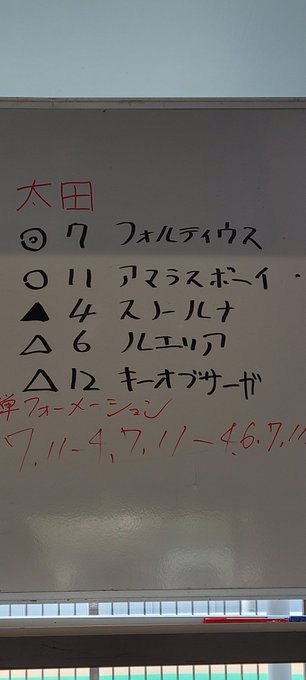 太田
◎ 7 フォルティウス
○ 11 アマラスボーイ
▲ 4 スノールナ
△ 6 ルエリア
△ 12 キーオブサーガ
単フォーメーション
7.11-4,7,11-4.6.7.11